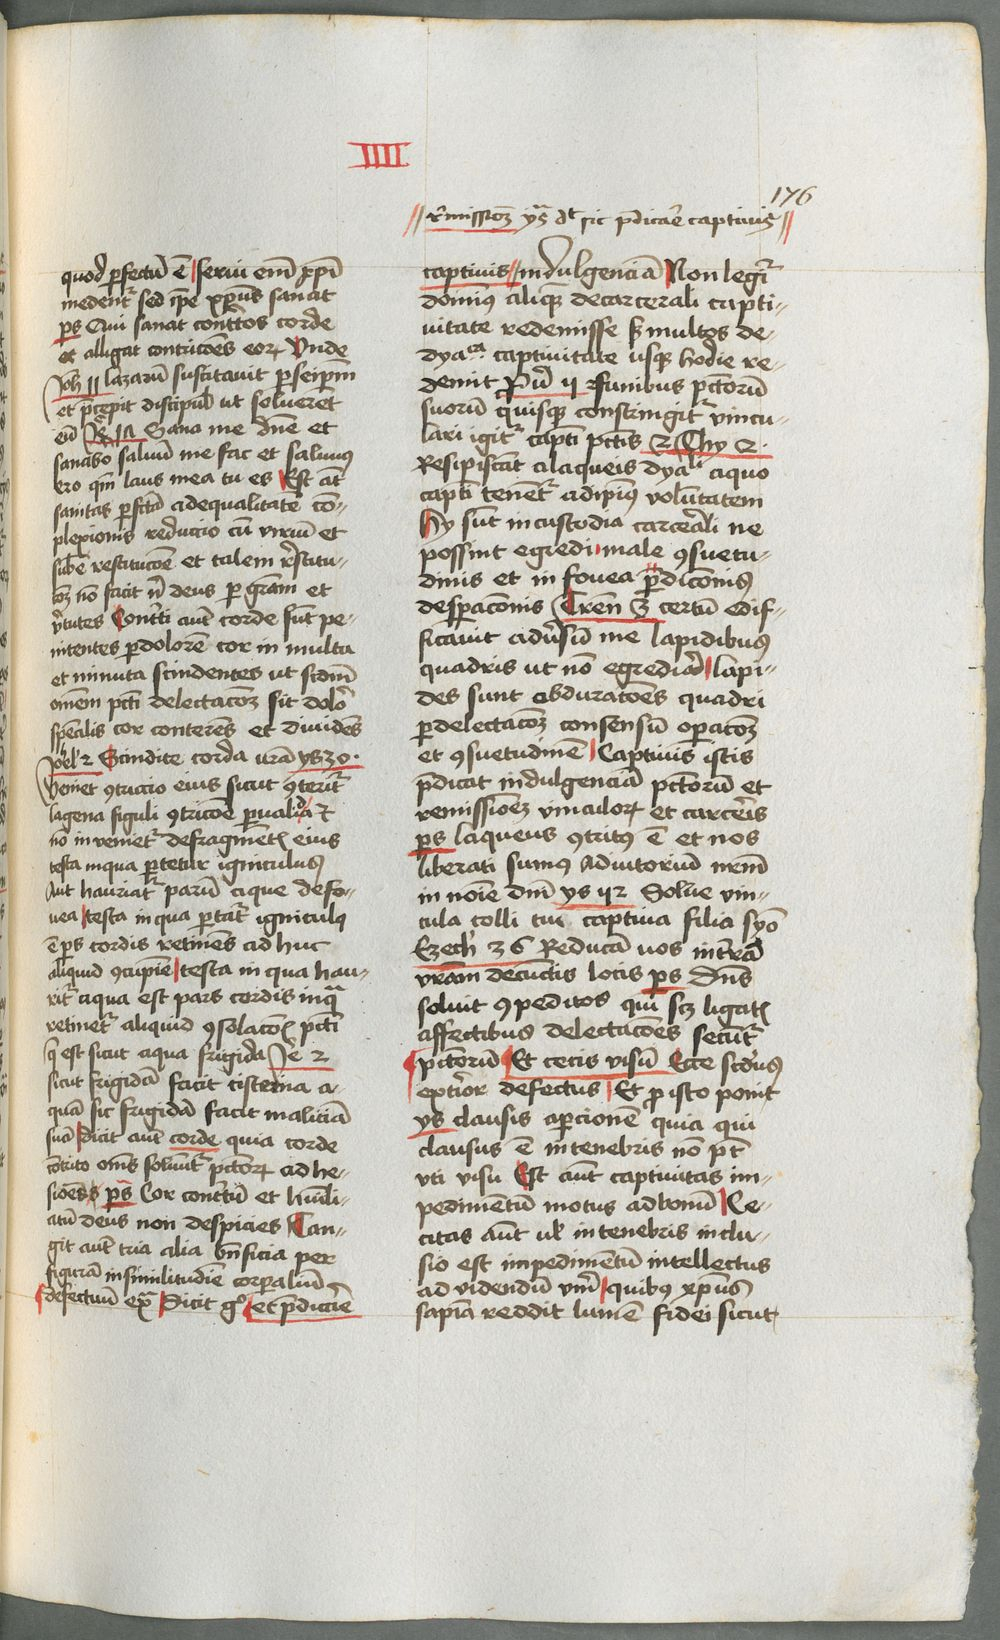 IIII
176
r̄missioēꝫ ys̄ dt sic p̄dicare captiuis
quod ꝑfectū ē serui em̄ xp̄i
medent᷑ sed ip̄e xp̄us sanat
ps Qui sanat cont̄tos corde
et alligat contricōes eoꝝ Vnde
Joh 11 lazarū suscitauit ꝑ seip̄m
et p̄cepit discipul᷑ ut solueret
eū Sana me dn̄e et
sanabo saluū me fac et saluus
ero qm̄ laus mea tu es Est at̄
sanitas ꝑfc̄ta adequalitatē cō-
plexionis reduccio cū viriū et
sub̄e restitucōe et talem r̄stitu-
coꝫ nō facit n̄ deus ꝑ gram̄ et
v̄tutes Cont̄ti aut̄ corde sūt pe-
nitentes ꝑ dolorē cor in multa
et minuta scindentes ut scdm̄
om̄em pcti delectacōꝫ sit dolor̄
sp̄ealis cor conterēs et diuidēs
Johel 2 Scindite corda vrā ys 30
Veniet ꝯtricio eius sicut ꝯterit᷑
lagena figuli ꝯtricōe ꝑualida et
nō inueniet᷑ de fragment̄ eius
testa in qua portetur igniculus
Aut hauriat᷑ parū aque de fo-
uea testa in qua portat᷑ igniculꝰ
ē ps cordis retinēs ad huc
aliquid ꝯcupiē testa in qua hau-
rit᷑ aqua est pars cordis in qua
retinet᷑ aliquid ꝯsolacōꝫ pcti
q̄ est sicut aqua frigida Je 2
sicut frigidā facit cisterna a-
quā sic frigidā facit maliciā
suā Dicit aut̄ corde quia corde
cōtrito om̄s soluūt᷑ pctoꝝ ad he-
sioēs ps Cor cont̄tū et humili-
atū deus non despicies Tan-
git aut̄ tria alia bn̄ficia per
figurā in similitudinē corꝑaliū
defectuū Dicit gͦ et p̄dicare
captiuis indulgenciā Non legit᷑
dominꝰ aliquē de carcerali capti-
uitate redemisse sꝫ multos de
dyaᶜᵃ captiuitate usqꝫ hodie re-
demit Funibus pctorū
suorū quisqꝫ constringit᷑ vincu-
lari igit᷑ capti pctis 2 Thy 2
Resipiscāt a laqueis dyaˡⁱ a quo
capti tenent᷑ ad ipsius volūtatem
Hy sūt in custodia carcerali ne
possint egredi male ꝯsuetu-
dinis et in fouea p̄dicōnis
desp̄acōnis Tren 3 certū edif-
ficauit adūsū me lapidibus
quadris ut nō egrediar lapi-
des sunt obduratoēs quadri
ꝑ delectacōꝫ consensū oꝑacōꝫ
et ꝯsuetudinē Captiuis istis
p̄dicat indulgenciā pctorū et
remissionēꝫ vinculoꝝ et carceris
ps laqueus ꝯtritus ē et nos
liberati sumus Adiutoriū nr̄m
in noīe dnī ys Solue vin-
cula colli tui captiua filia syō
Ezech 36 Reducā uos in terrā
vrām de cūctis locis ps Dn̄s
soluit ꝯpeditos qui scꝫ ligati
affectibus delectacōes secūt᷑
pctorū Et cecis visū Ecce scdꝰ
ext̄ior defectus Et pro isto ponit
ys clausis aꝑcionē quia qui
clausus ē in tenebris nō pt̄
vti visu Est aut̄ captiuitas im-
pedimentū motus ad bonū Ce-
citas aut̄ ul̄ in tenebris inclu-
sio est impedimentū intellectus
ad videndū vm̄ quibus xp̄us
sapiā reddit lumē fidei sicut